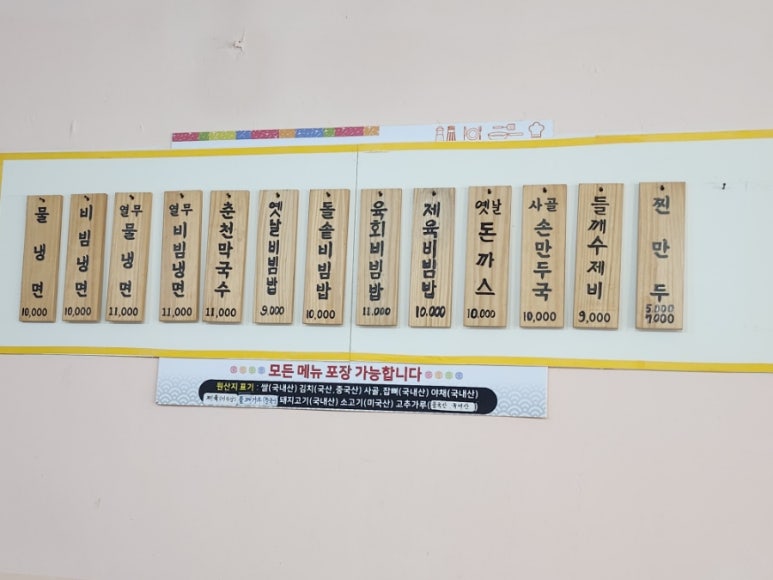 물냉면
10,000
비빔냉면
10,000
열무
물냉면
11,000
열무
비빔냉면
11,000
춘천막국수
11,000
옛날비빔밥
9,000
돌솥비빔밥
10,000
육회비빔밥
11,000
제육비빔밥
10,000
옛날
돈까스
10,000
사골
손만두국
10,000
들깨수제비
9,000
찐만두
5,000
7,000
모든 메뉴 포장 가능합니다
원산지 표기 : 쌀(국내산) 김치(국산,중국산) 사골,잡뼈(국내산) 야채(국내산)
돼지고기(국내산) 소고기(미국산) 고추가루(중국산, 국내산)